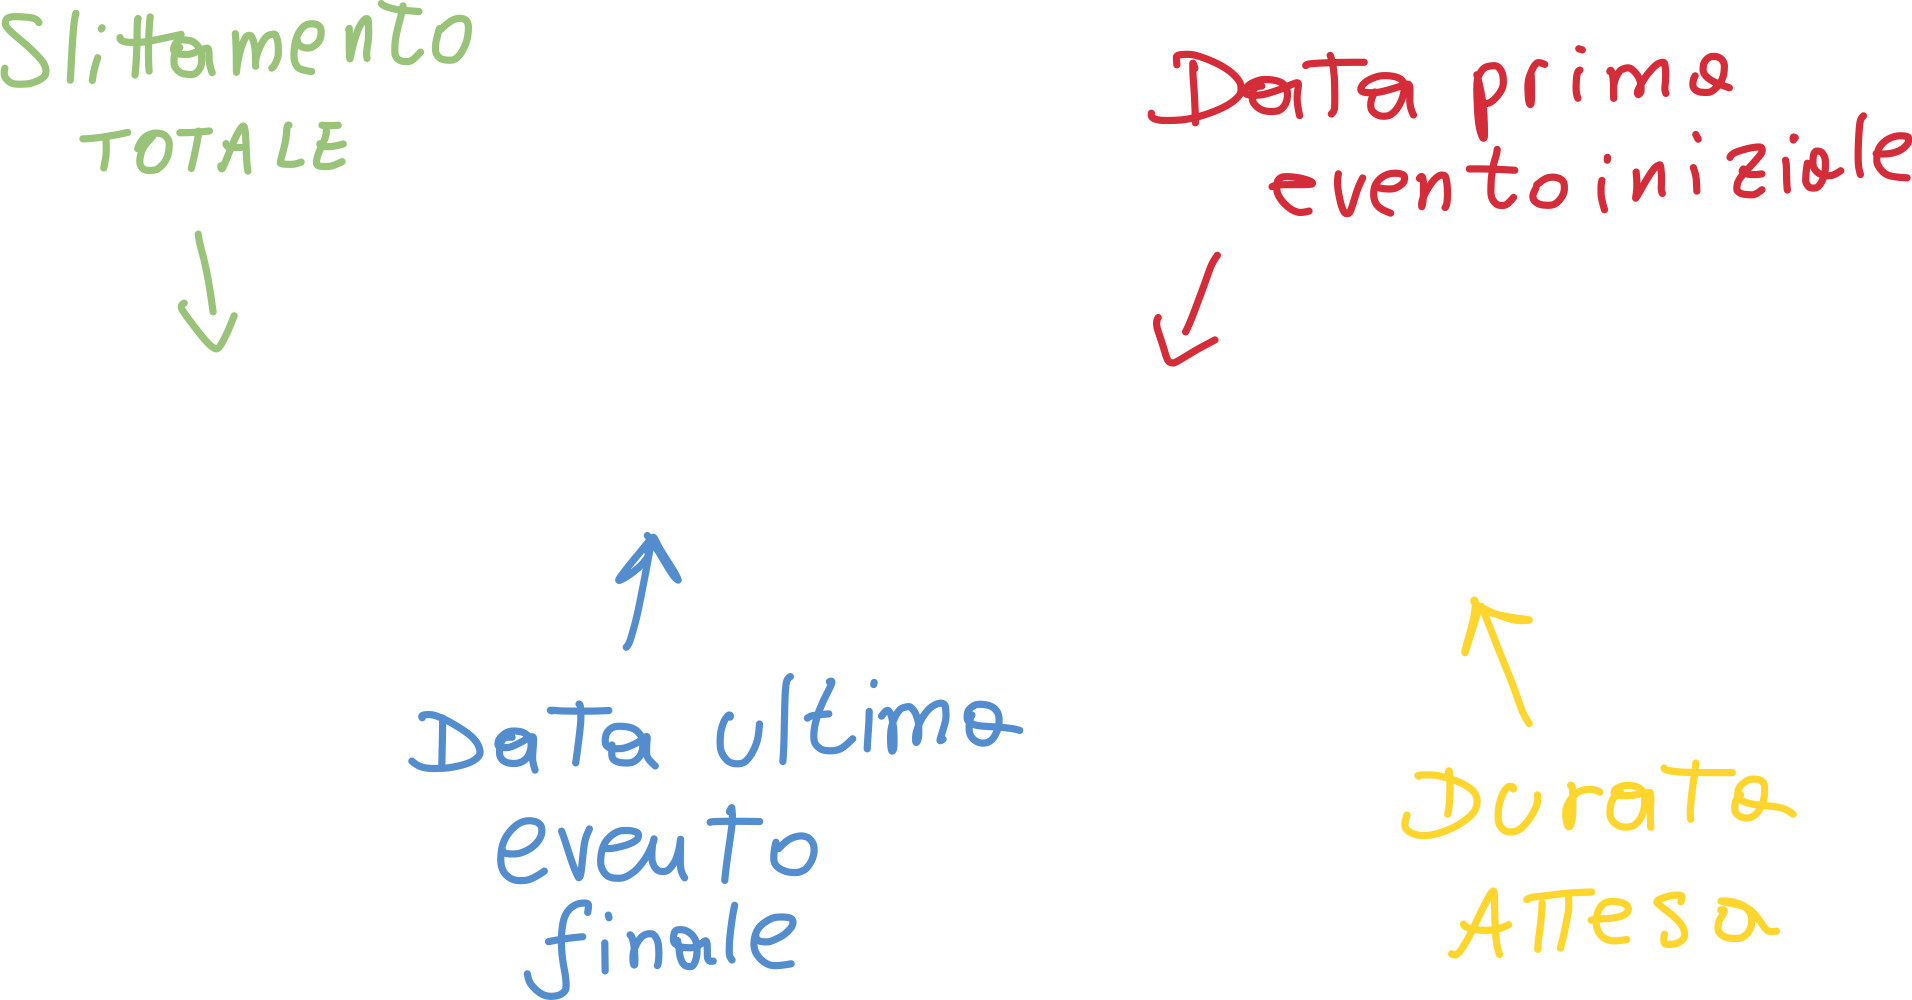 Slittamento
TOTALE
Data prima
evento iniziale
Data ultima
evento
finale
Durata
Attesa